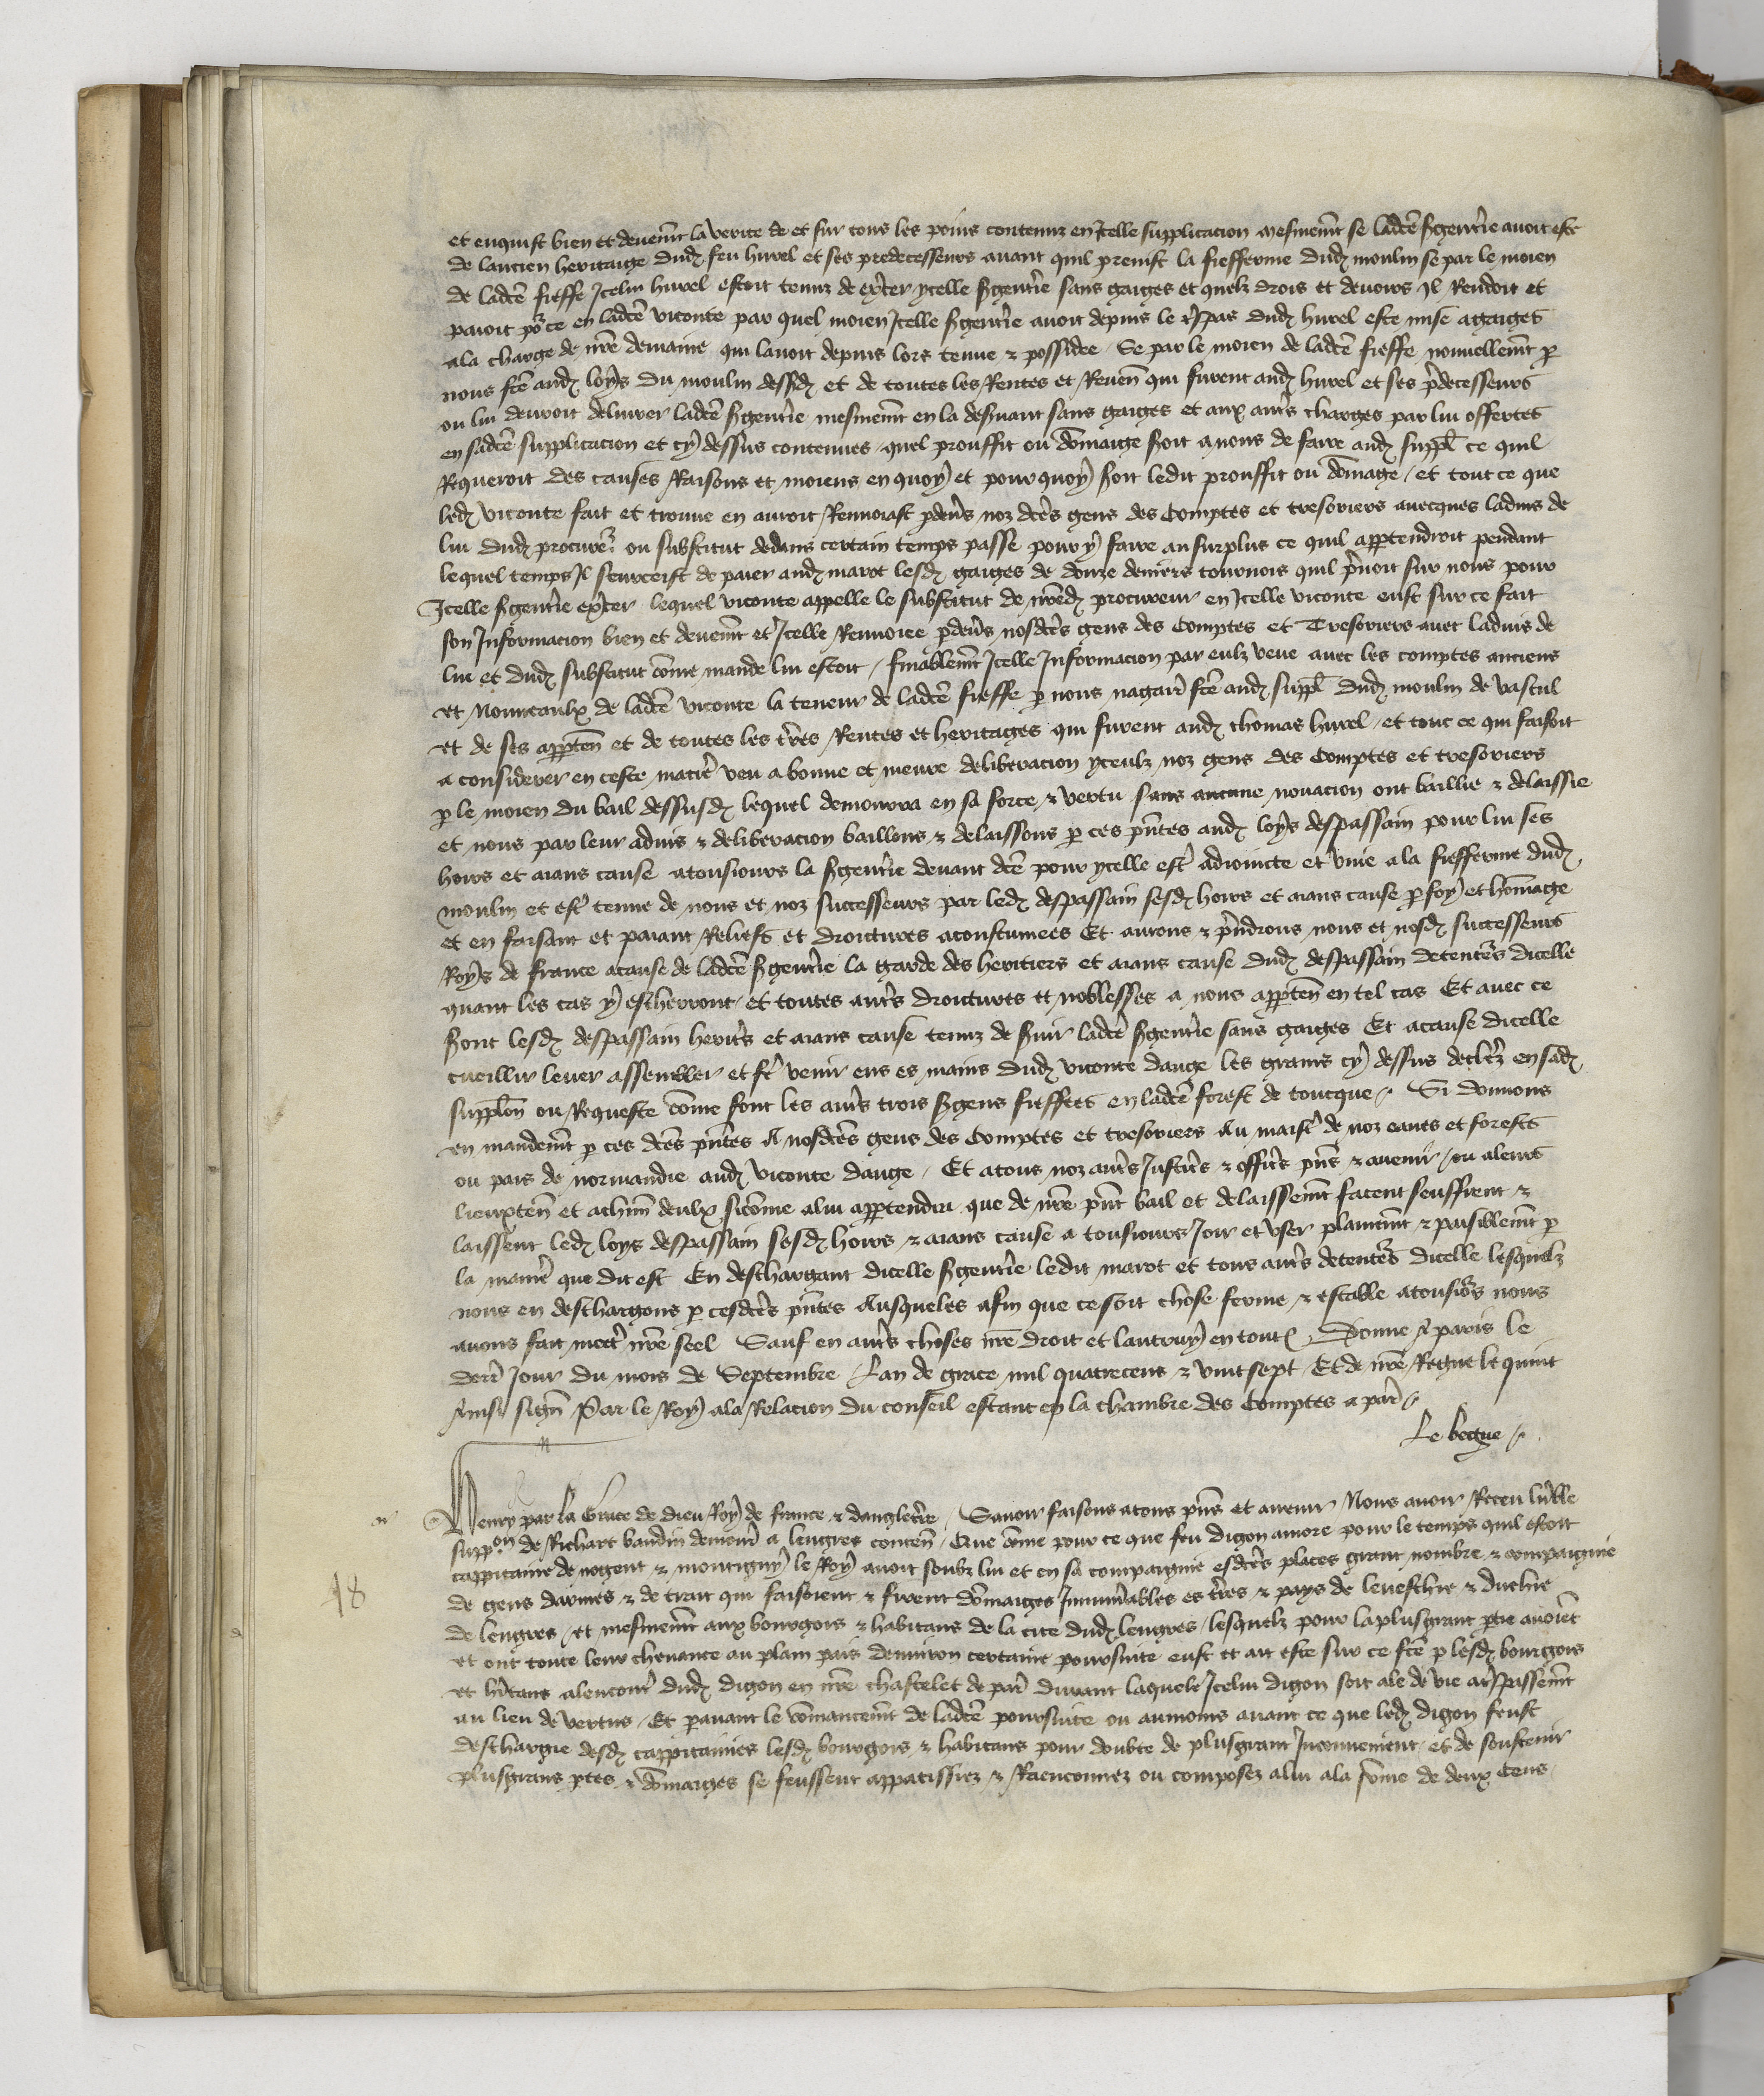 et enquist bien et deuemt la verite de et sur tous les poins contenuz en Icelle supplicacion mesmemt se ladce sgentie auoit este
de lancien heritaige dudj feu hurel et ses predecesseurs auant quil prenist la fiefferme dudj moulin se par le moien
de ladce fieffe Icelui hurel estoit tenuz de excter ycelle sgentie sans gaiges et quelz drois et deuoirs Il Rendoit et
paioit por ce en ladce viconte par quel moien Icelle sgentie auoit depuis le trspas dudj hurel este mise a gaiges
ala charge de nre demaine qui lauoit depuis lors tenue & possidee Se par le moien de ladce fieffe nouuellemt p
nous fce audj loys du moulin dessdj et de toutes les Rentes et Reuen qui furent audj hurel et ses pdecesseurs
on lui deuroit deliurer ladce sgentie mesmemt en la deseruant sans gaiges et aux autrs charges par lui offertes
en sadce supplicacion et cy dessus contenues quel prouffit ou domaige seroit a nous de faire audj suppl ce quil
Requeroit des causes Raisons et moiens en quoy et pour quoy soit ledit prouffit ou domage / et tout ce que
ledj viconte fait et trouue en auroit Renuoiast pdeuers noz dces gens des Comptes et tresoriers auecques laduis de
lui dudj procureur ou substitut dedans certain temps passe pour y faire au surplus ce quil appartendroit pendant
lequel temps Il surceist de paier audj marot lesdj gaiges de douze deniers tournois quil prenoit sur nous pour
Icelle sgentie excter lequel viconte appelle le substitut de nredj procureur en Icelle viconte eust sur ce fait
son Informacion bien et deuemt et Icelle Renuoiee pdeuers nosdces gens des Comptes et Tresoriers auec laduis de
lui et dudj substitut come mande lui estoit / finablemt Icelle Informacion par eulx veue auec les comptes anciens
et Nouueaulx de ladce viconte la teneur de ladce fieffe p nous nagair fce audj suppl dudj moulin de vascul
et de ses apparten et de toutes les tres Rentes et heritages qui furent audj thomas hurel / et tout ce qui faisoit
a considerer en ceste matire veu a bonne et meure deliberacion yceulx noz gens des Comptes et tresoriers
p le moien du bail dessusdj lequel demourra en sa force & vertu sans aucune nouacion ont baillie & delaissie
et nous par leur aduis & deliberacion baillons & delaissons p ces pntes audj loys despassain pour lui ses
hoirs et aians cause a tousiours la sgentie deuant dce pour ycelle estr adioincte et vnie a la fiefferme dudj
moulin et estr tenue de nous et noz successeurs par ledj despassain sesdj hoirs et aians cause p foy et homage
et en faisant et paiant Reliefs et droictures acoustumees Et aurons & prendrons nous et nosdj successeurs
Roys de france a cause de ladce sgentie la garde des heritiers et aians cause dudj despassain detenters dicelle
quant les cas y escherront / et toutes autrs droictures et noblesses a nous apparten en tel cas Et auec ce
seront lesdj despassain heritrs et aians cause tenuz de seruir ladce sgentie sans gaiges Et a cause dicelle
cueillir leuer assembler et fre venir ens es mains dudj viconte dauge les grains cy dessus declrez en sadj
supplon ou Requeste come font les autrs trois sgens fieffees en ladce forest de toucque Si donnons
en mandemt p ces dces pntes A nosdces gens des Comptes et tresoriers Au maistre de noz eaues et forests
ou pais de normandie audj viconte dauge / Et a tous noz autrs Justicrs & officrs pns & auenir / ou a leurs
lieuxten et a chun deulx sicome a lui appartendra que de nre pnt bail et delaissemt facent seuffrent &
laissent ledj loys despassain sesdj hoirs & aians cause a tousiours Joir et vser plainemt & paisiblemt p
la maniere que dit est En deschargant dicelle sgentie ledit marot et tous autrs detenters dicelle lesquelz
nous en deschargons p cesdces pntes Ausqueles afin que ce soit chose ferme & estable a tousiours nous
auons fait mectre nre seel Sauf en autrs choses nre droit et lautruy en toutes Donne a paris le
derr Jour du mois de Septembre Lan de grace mil quatrecens & vint sept Et de nre Regne le quint
Ainsi sign Par le Roy a la Relacion du conseil estant en la chambre des Comptes a paris
Le begue
Henry par la Grace de dieu Roy de france & dangleterre Sauoir faisons a tous pns et auenir Nous auoir Receu lumble
suppon de Richart baudin demeurant a lengres conten / Que come pour ce que feu digon amore pour le temps quil estoit
cappitaine de nogent & montigny le Roy auoit soubz lui et en sa compaignie esdces places grant nombre & compaignie
de gens darmes & de trait qui faisoient & firent domaiges Innumerables es tres & pays de leueschie & duchie
de lengres / et mesmemt aux bourgois & habitans de la cite dudj lengres / lesquelz pour la plusgrant ptie auoient
et ont toute leur cheuance au plain pais denuiron certaine poursuite eust et ait este sur ce fce p lesdj bourgois
et hitans alencontre dudj digon en nre chastelet de paris durant laquele Icelui digon soit ale de vie a trspassemt
au lieu de vertus / Et pauant le comancemt de ladce poursuite ou aumoins auant ce que ledj digon feust
deschargie desdj cappitaines lesdj bourgois & habitans pour doubte de plusgrant Inconuenient et de soustenir
plusgrans ptes & domaiges se feussent appatissiez & Raenconnez ou composez a lui a la some de deux Cens
48